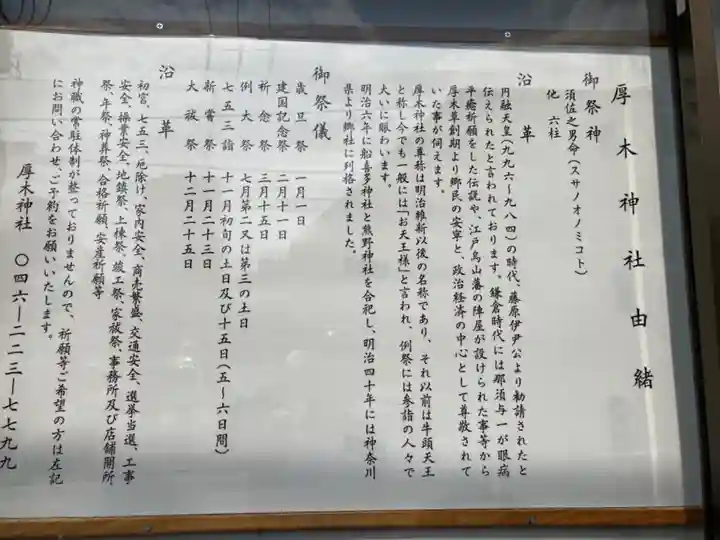 厚木神社由緒
御祭神
須佐之男命(スサノオノミコト)
他 六柱
沿革
円融天皇(九九六~九八四)の時代、藤原伊尹公より勧請されたと
伝えられたと言われております。鎌倉時代には那須与一が眼病
平癒祈願をした伝説や、江戸烏山藩の陣屋が設けられた事等から
厚木草創期より郷民の安寧と、政治経済の中心として尊敬されて
いた事が伺えます。
厚木神社の尊称は明治維新以後の名称であり、それ以前は牛頭天王
と称し今でも一般には「お天王様」と言われ、例祭には参詣の人々で
大いに賑わいます。
明治六年に船喜多神社と熊野神社を合祀し、明治四十年には神奈川
県より郷社に列格されました。
御祭儀
歳旦祭 一月一日
建国記念祭 二月十一日
祈念祭 三月十五日
例大祭 七月第二又は第三の土日
七五三詣 十一月初旬の土日及び十五日(五~六日間)
新嘗祭 十一月二十三日
大祓祭 十二月二十五日
沿革
初宮、七五三、厄除け、家内安全、商売繁盛、交通安全、選挙当選、工事
安全、操業安全、地鎮祭、上棟祭、竣工祭、家祓祭、事務所及び店舗開所
祭、年祭、神葬祭、合格祈願、安産祈願等
神職の常駐体制が整っておりませんので、祈願等ご希望の方は左記
にお問い合わせ、ご予約をお願いいたします。
厚木神社 〇四六ー二二三ー七七九九